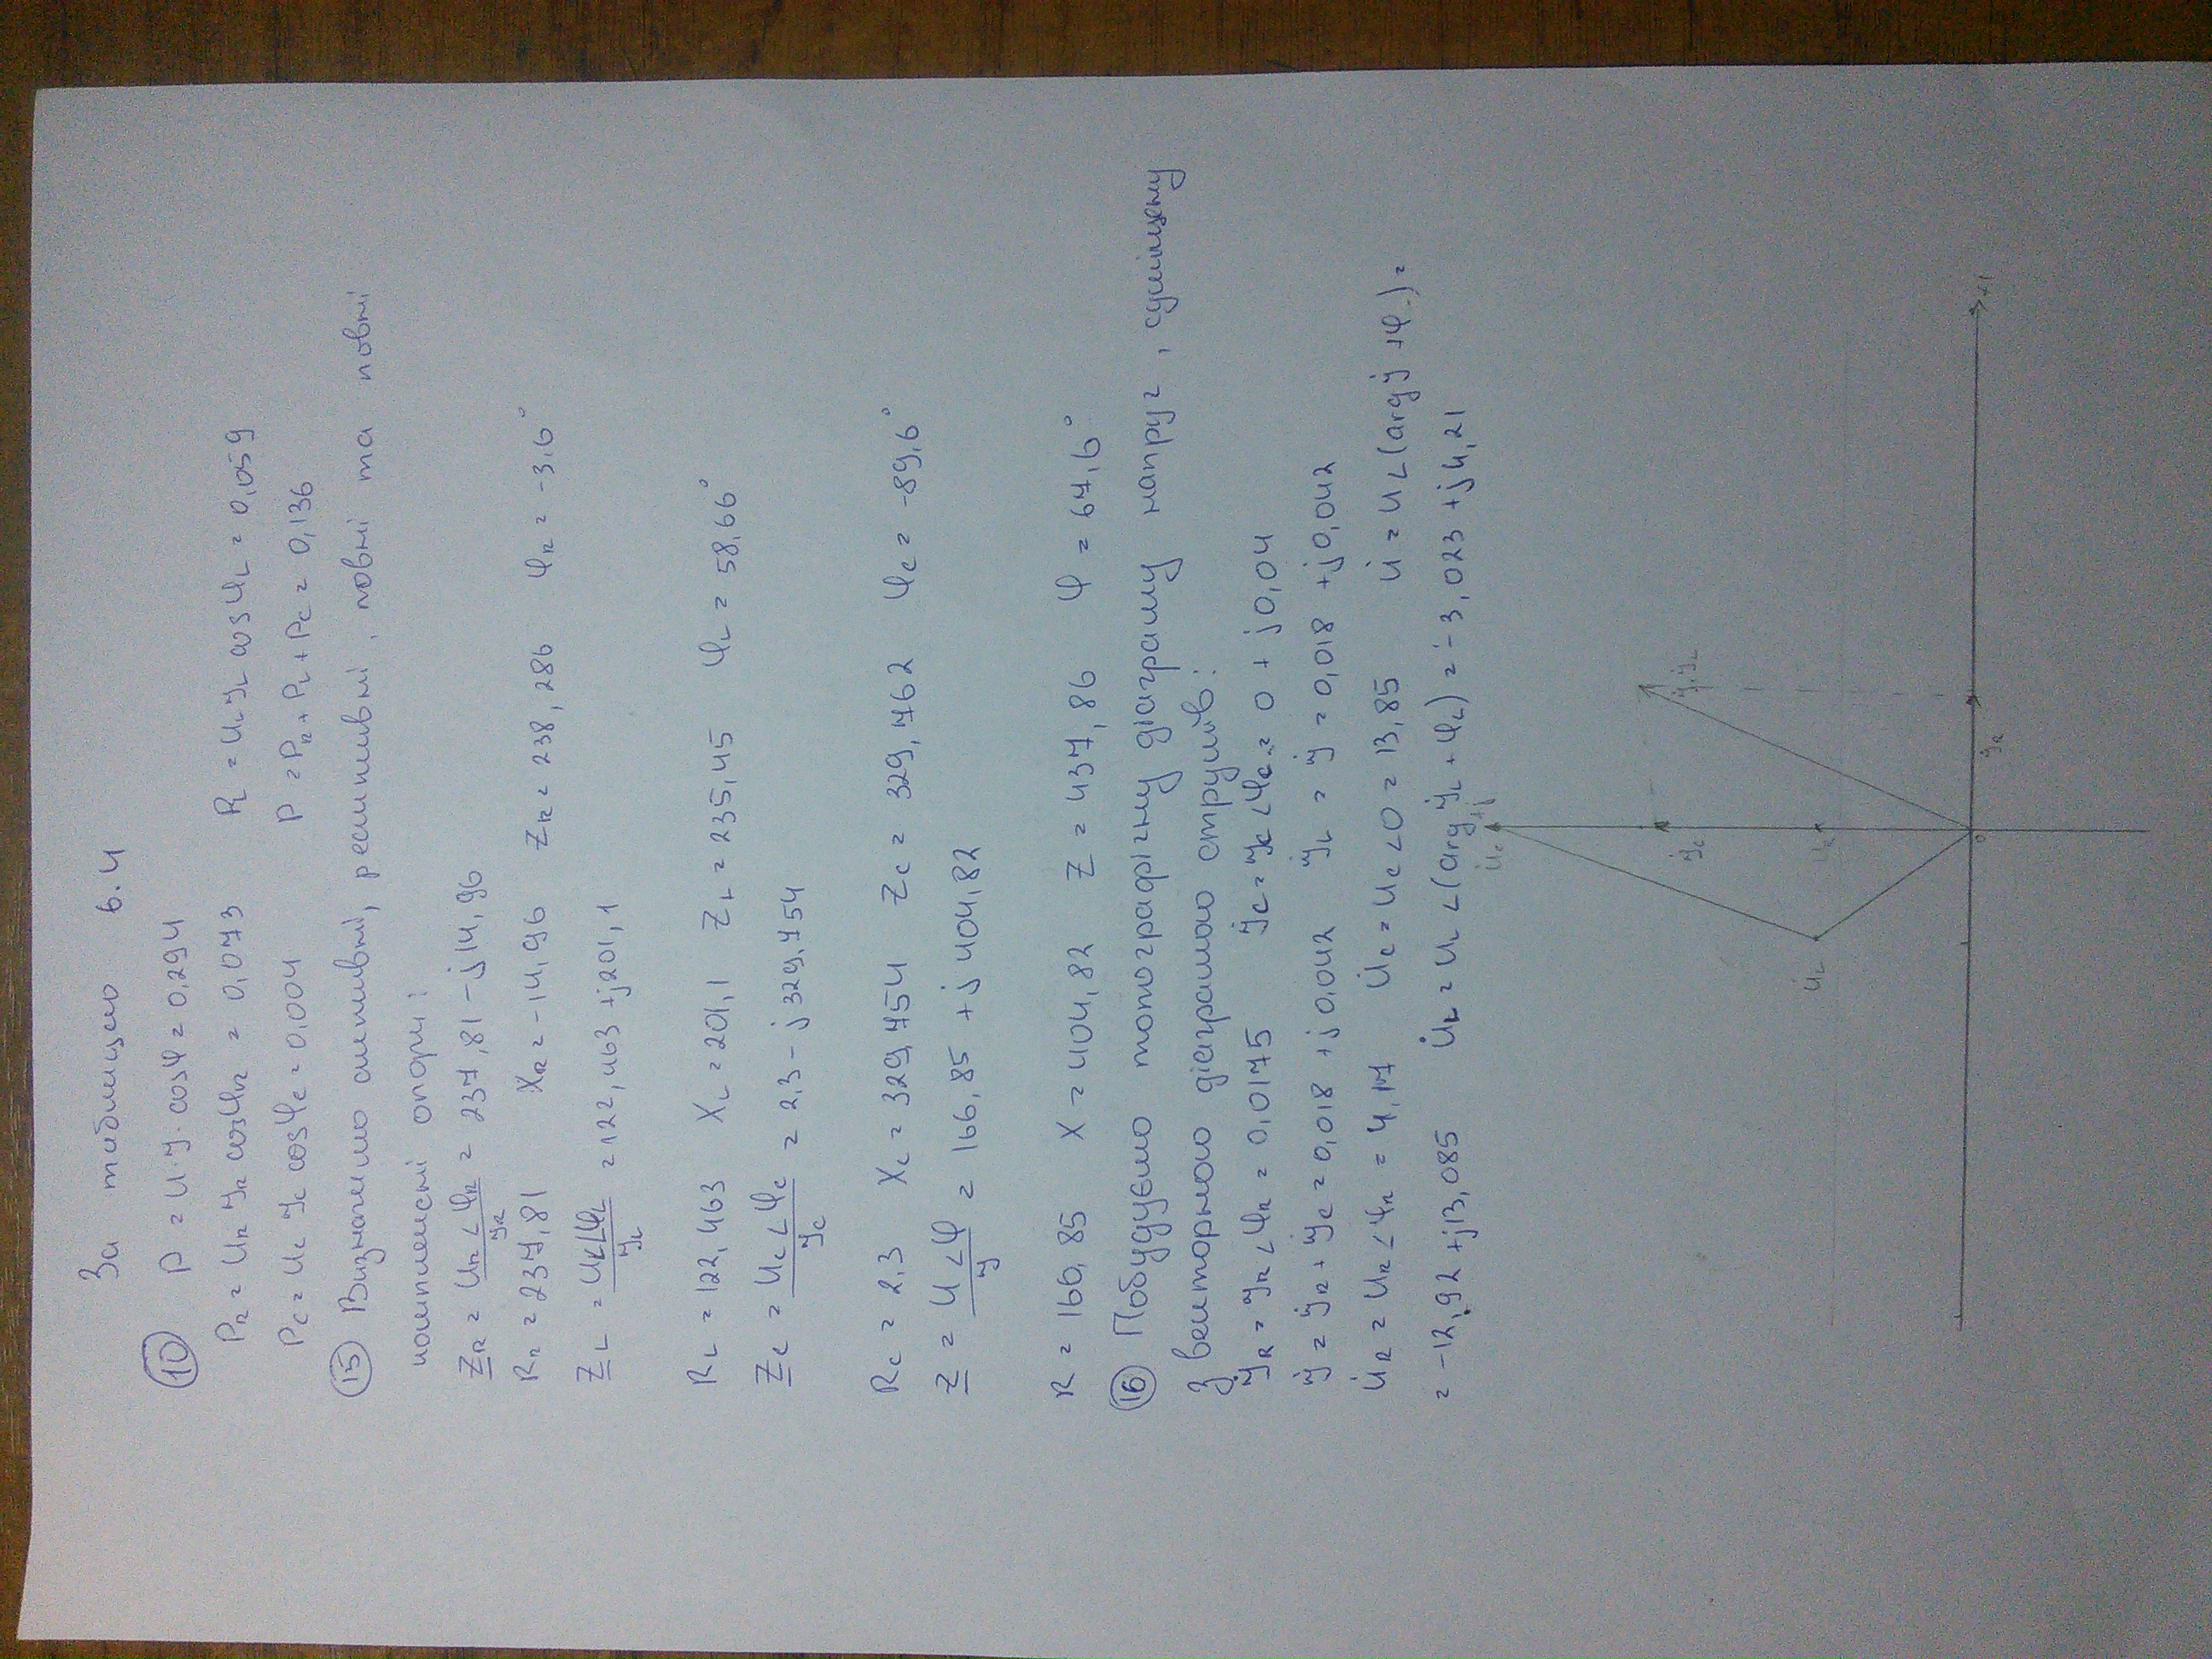 За таблицею 6.4
⑩ P = U·I·cosφ = 0,294
P_R = U_R I_R cosφ_R = 0,073 P_L = U_L I_L cosφ_L = 0,059
P_C = U_C I_C cosφ_C = 0,004 P = P_R + P_L + P_C = 0,136
⑮ Визначимо активні, реактивні, повні та повні
комплексні опори:
Z_R = U_R∠φ_R / I_R = 237,81 - j14,96
R_R = 237,81 X_R = -14,96 Z_R = 238,286 φ_R = -3,6°
Z_L = U_L∠φ_L / I_L = 122,463 + j201,1
R_L = 122,463 X_L = 201,1 Z_L = 235,45 φ_L = 58,66°
Z_C = U_C∠φ_C / I_C = 2,3 - j329,754
R_C = 2,3 X_C = 329,754 Z_C = 329,762 φ_C = -89,6°
Z = U∠φ / I = 166,85 + j404,82
R = 166,85 X = 404,82 Z = 437,86 φ = 67,6°
⑯ Побудуємо топографічну діаграму напруг, суміщену
з векторною діаграмою струмів:
İ_R = I_R∠φ_R = 0,0175 İ_C = I_C∠φ_C = 0 + j0,04
İ = İ_R + İ_C = 0,018 + j0,042 İ_L = İ = 0,018 + j0,042
U̇_R = U_R∠φ_R = 4,17 U̇_C = U_C∠0 = 13,85 U̇ = U∠(arg İ + φ) =
= -12,92 + j13,085 U̇_L = U_L∠(arg İ_L + φ_L) = -3,023 + j4,21
U̇_C +j
İ, İ_L
İ_C
U̇_L U̇_R
İ_R
0 +1